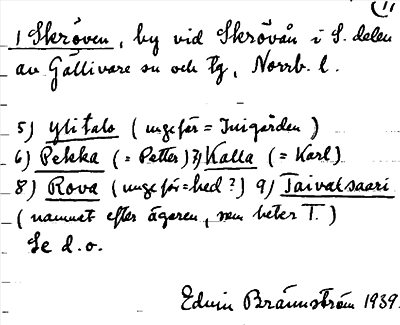 11
1 Skröven, by vid Skrövån i S. delen
av Gällivare sn och tg, Norrb. l.
5) Ylitalo (ungefär = Inigården)
6) Pekka (= Petter) 7) Kalla (= Karl)
8) Rova (ungefär = hed?) 9) Taivalsaari
(namnet efter ägaren, som heter T.)
Se d.o.
Edwin Brännström 1939.